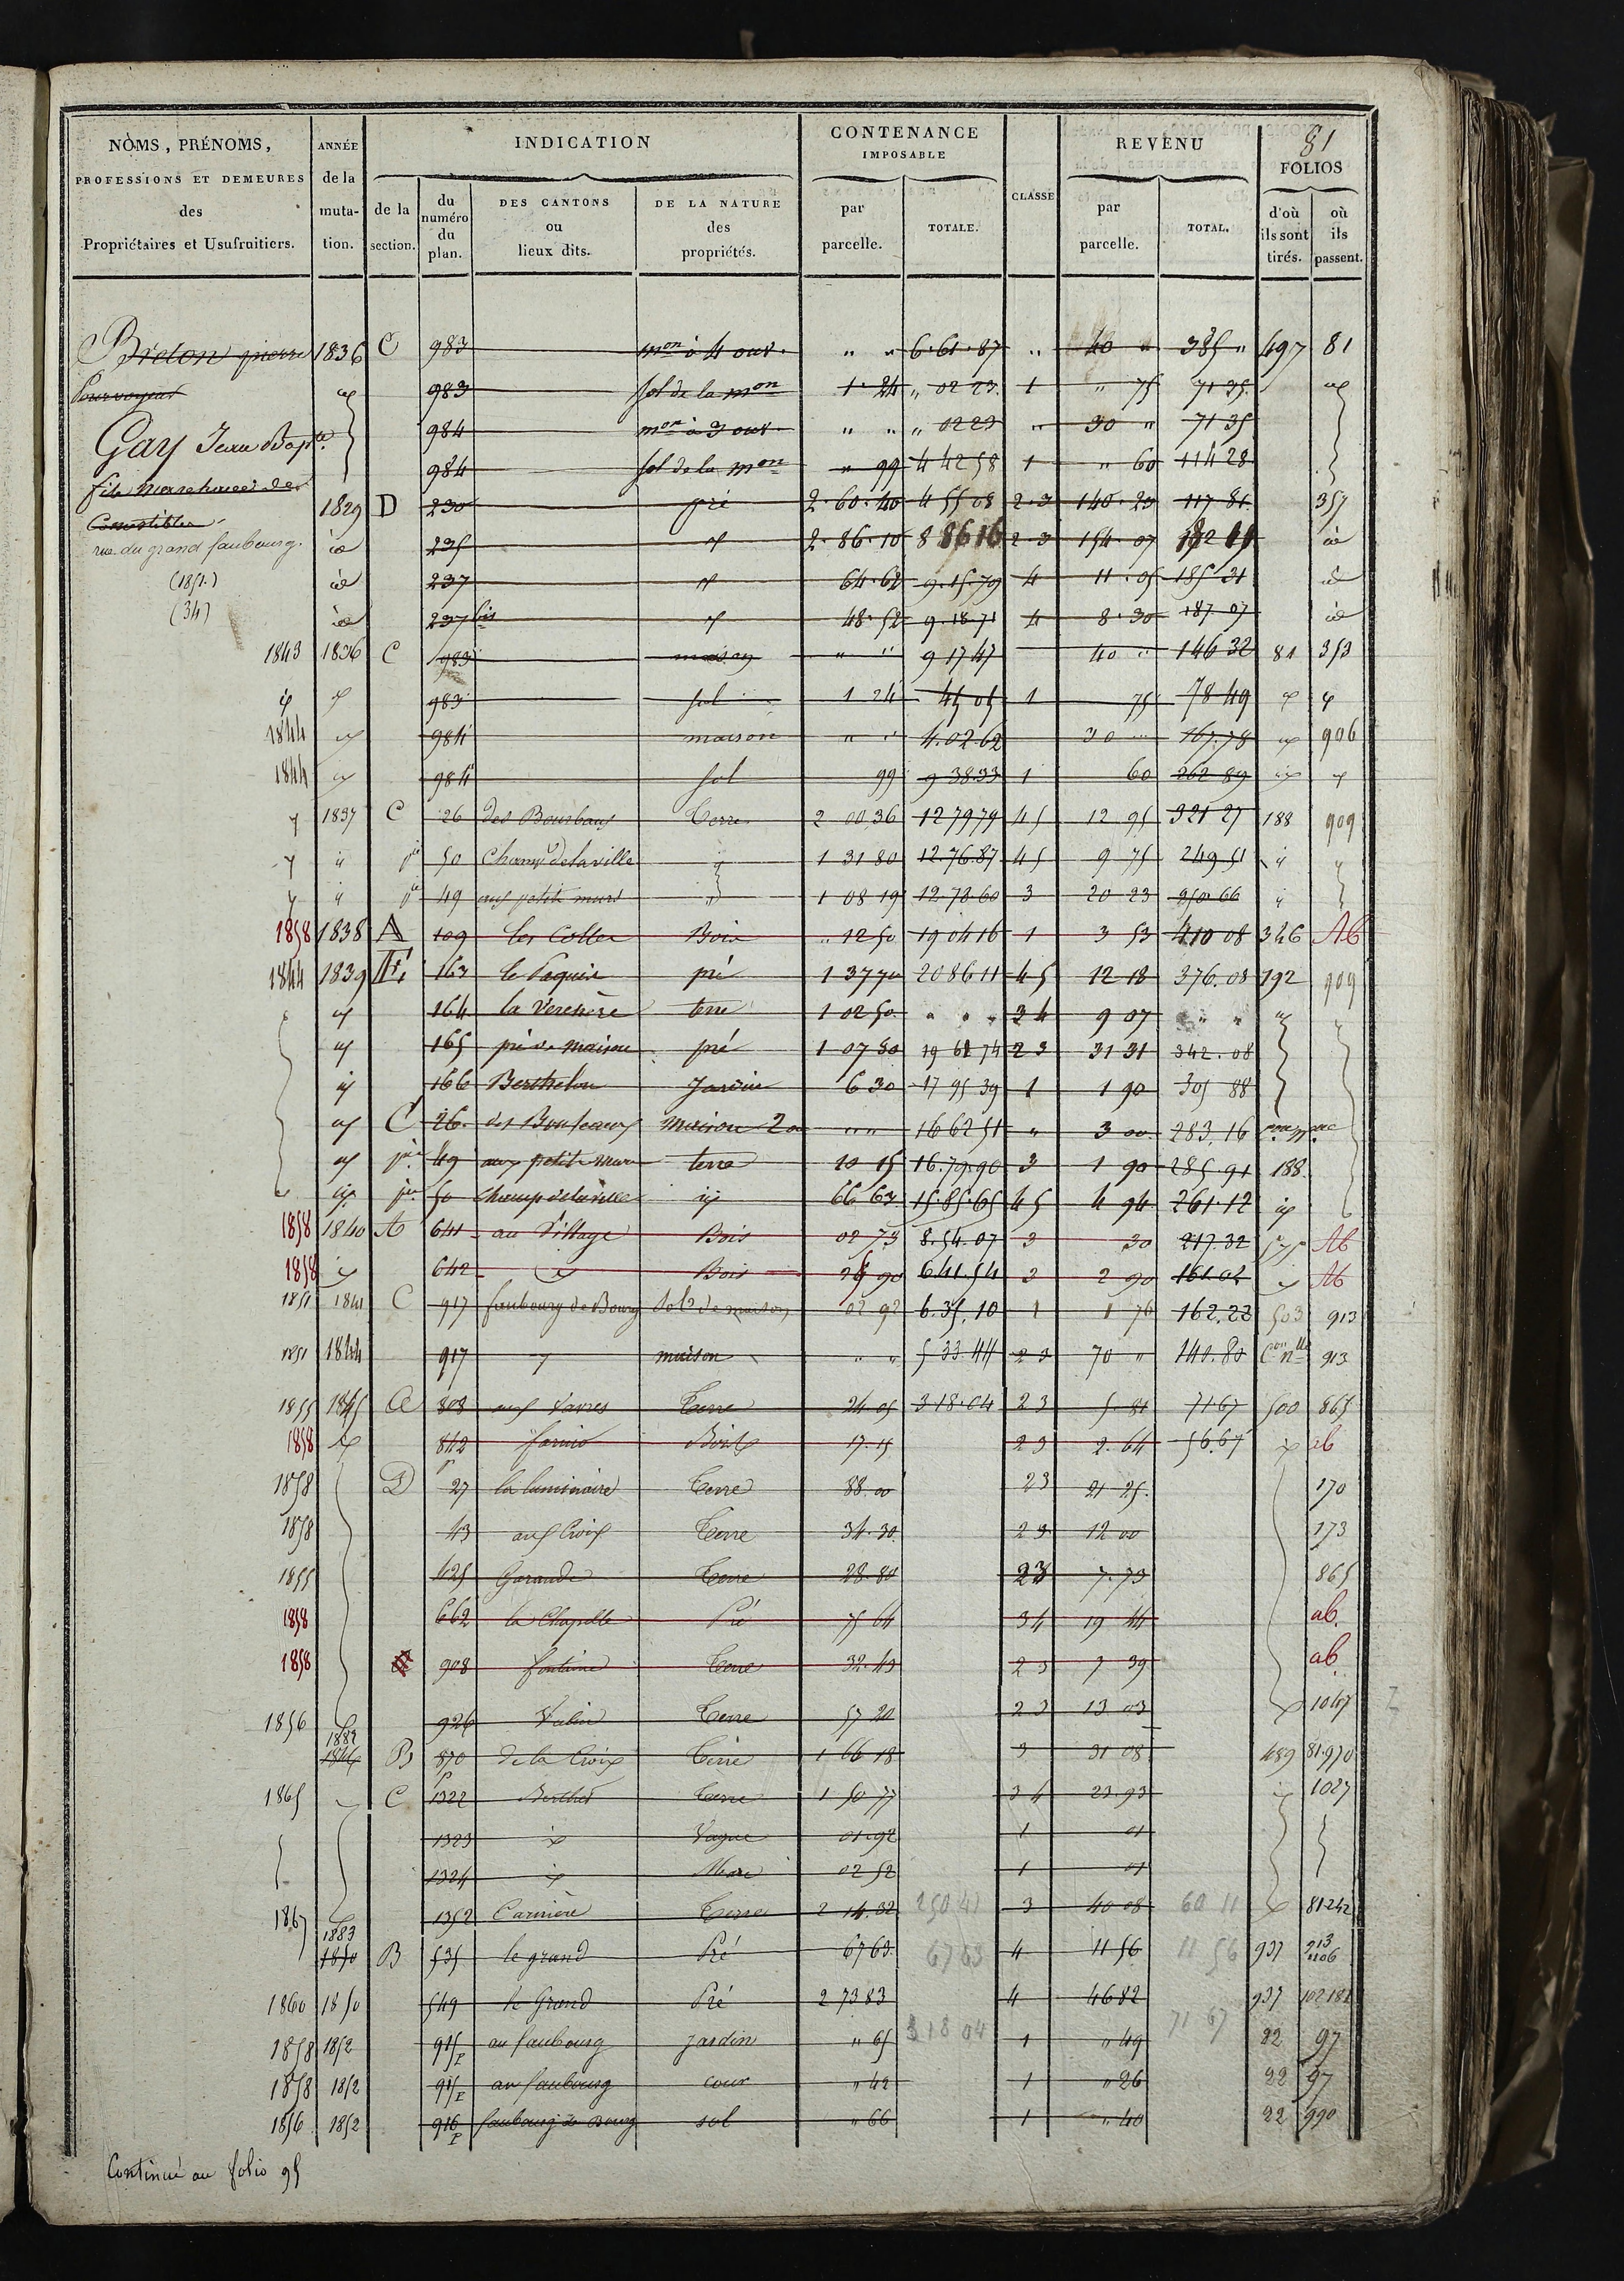 81
NOMS, PRÉNOMS, PROFESSIONS ET DEMEURES des Propriétaires et Usufruitiers.
ANNÉE de la muta- tion.
INDICATION
de la section.
du numéro du plan.
DES CANTONS ou lieux dits.
DE LA NATURE des propriétés.
CONTENANCE IMPOSABLE
par parcelle.
TOTALE.
CLASSE
REVENU
par parcelle.
TOTAL.
FOLIOS
d'où ils sont tirés.
où ils passent.
Breton pierre 1836 C 983 mon à 4 ouv. " " 6.61.87 " 40 " 385 " 497 81
Pourvoyeur 983 sol de la mon 1.24 " 02 23 1 " 75 71 35
Gay Jean Bapte. 984 mon à 3 ouv. " " " 02 23 " 30 " 71 35
984 sol de la mon " 99 4 42 58 1 " 60 114 28
fils
1829 D 230 pré 2.60.40 4 55 08 2.3 140.23 117 81 357
Comestibles
rue du grand faubourg. id 235 2.86.10 8 86 16 2 3 154.07 id
(1851.) id 237 64.62 9.15.79 4 11.05 185 31 id
(34) id 237 bis 48.52 9.18.71 4 8.30 187.07 id
1843 1836 C 983 maison " " 9 17 47 40 " 146 32 81 353
983 sol 1 24 45 05 1 75 78 49
1844 984 maison " " 4.02.62 30 " 167.78 906
1844 984 sol 99 9 38 33 1 60 262 89
1837 C 26 des Bourbaux Terre 2 00 36 12 79 79 4 5 12 95 321 27 188 909
50 Champ de la ville 1 31 80 12.76.87 4 5 9 75 249 51
49 aux petits murs 1 08 19 12.78.60 3 20 23 250 66
1858 1838 A 109 les Colles Bois " 12 50 19 04 16 1 3 53 410 08 346 Ab
1844 1839 163 le Paquis pré 1 37 70 20 86 11 4 5 12 18 376.08 192 909
164 terre 1 02 50 " " " 3 4 9 07 " "
165 pré 1 07 80 19 61 74 2 3 31 31 342.08
166 Berthelon Jardin 6 30 17 95 39 1 1 90 305 88
C 26. Maison 2 " " 16 62 51 " 3 00 283.16
49 aux petits murs terre 10 15 16.79.90 3 1 90 285.91 188
50 Champ de la ville 66 63 15.85.65 4 5 4 94 261.12
1858 1840 A 641 au Village Bois 02 73 8.54.07 3 30 217.32 575 Ab
1858 642 Bois 90 6.41.54 3 2 90 161.02 Ab
1851 1841 C 917 faubourg de Bourg Sol de maison 02 92 6.35.10 1 1 76 162.22 503 913
1851 1844 917 maison " " 5 33 44 2 3 70 " 140.80 Con nlle 913
1855 1845 803 aux Vavres Terre 24 05 3 18.04 2 3 5.81 71 67 500 865
1858 842 Bois 17.15 2 3 2.64 56.67 ab
1858 D 27 la luminaire Terre 88.00 23 21 25. 170
1858 43 aux Croix Terre 34.30 2 3 12 00 173
1855 625 Garaude Terre 28.80 23 7.73 865
1858 662 la Chapelle Pré 75 64 34 19 44 ab.
1858 908 fontaine Terre 32.43 2 3 7 39 ab
1856 926 Terre 57 20 2 3 13 03 1047
1882 1846 B 870 de la Croix Terre 1 66 18 3 31 08 489 81.970
1865 C 1322 Berthet Terre 1 50 77 3 4 23.93 1027
1323 Vague 01.92 1 01
1324 Mare 02 52 1 01
1867 1352 Carrière Terre 2 14.32 250 41 3 40 08 60 11 81.242
1883 1850 B 535 le grand Pré 67 63 67 63 4 11 56 11 56 937 213 1106
1860 1850 549 le Grand Pré 2 73 83 4 46 82 937 102 181
1858 1852 915 P au faubourg jardin " 65 3 18 04 1 " 49 71 67 22 97
1858 1852 915 P au faubourg cour " 42 1 " 26 22 97
1856 1852 916 P faubourg de Bourg sol " 66 1 " 40 22 990
Continué au folio 95